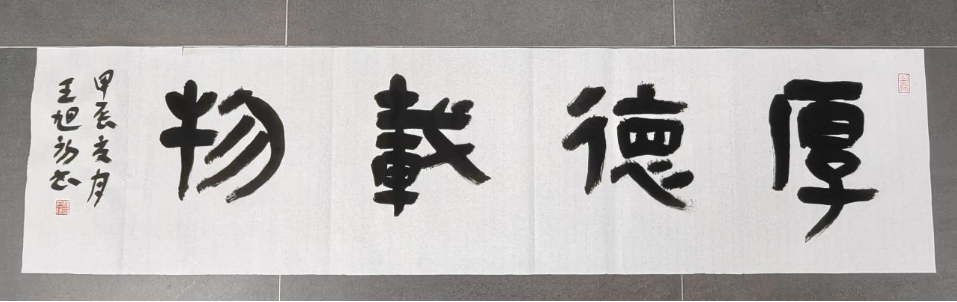 厚德載物
甲辰亥月
王旭初书